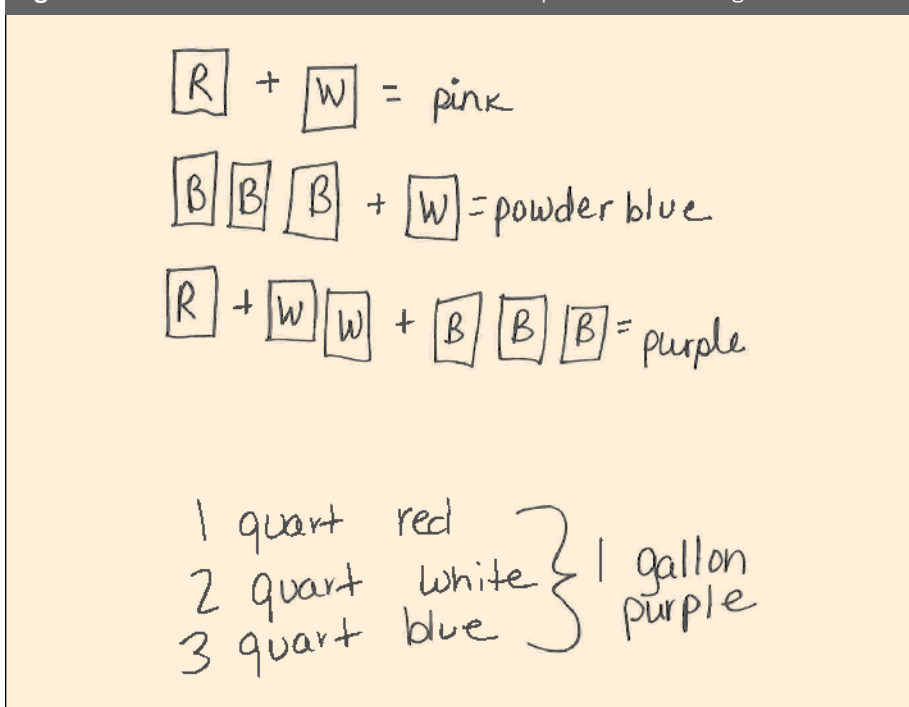 R + W = pink
B B B + W = powder blue
R + W W + B B B = purple
1 quart red
2 quart white
3 quart blue
1 gallon
purple